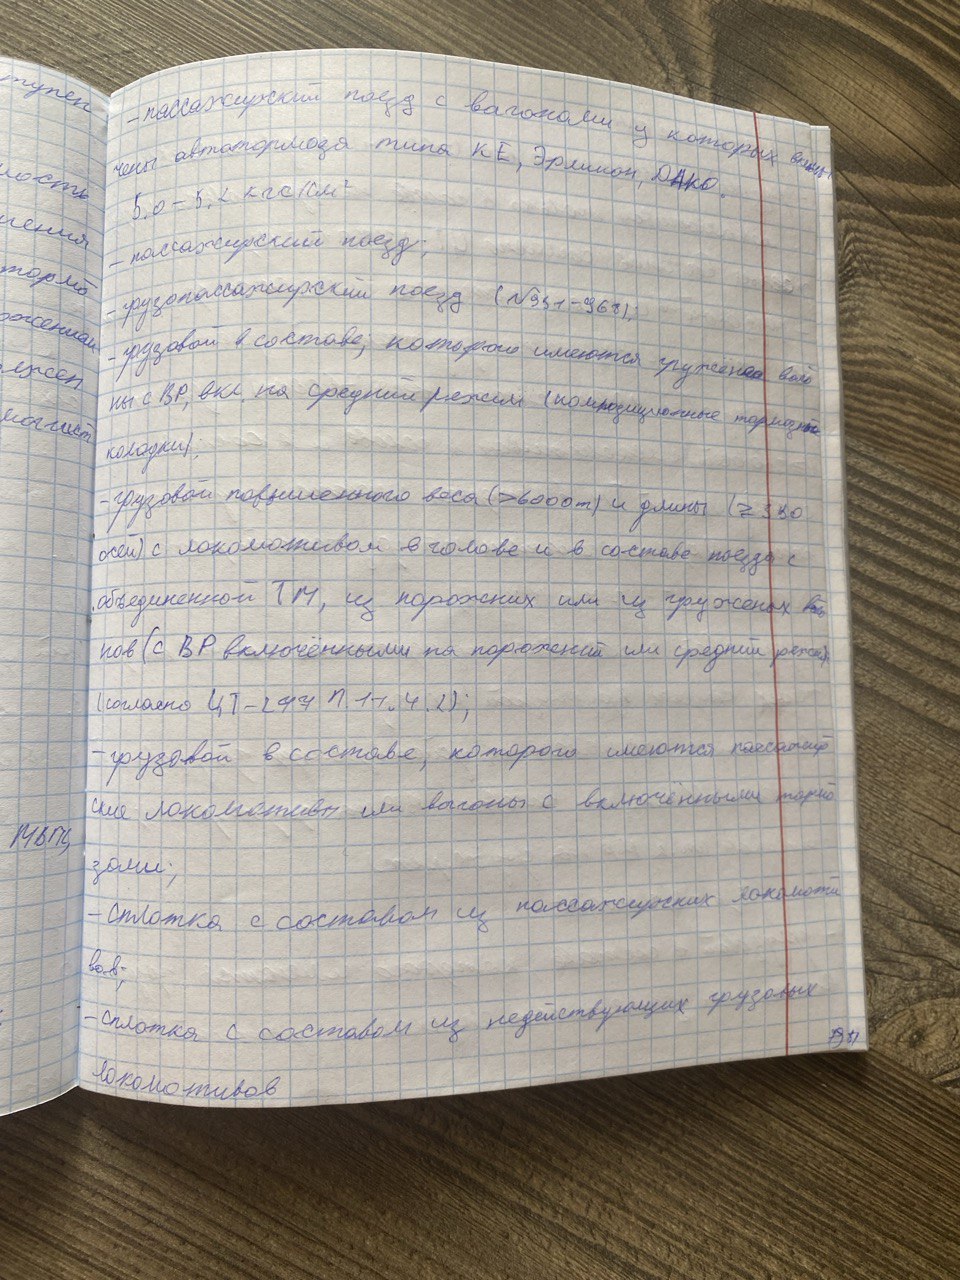 тупен
лость
тормо
жен
магист
МВПЦ,
- пассажирский поезд с вагонами у которых
чены автотормоза типа КЕ, Эрликон, ДАКО.
5,0 - 5,2 кгс/см²
- пассажирский поезд;
- грузопассажирский поезд (№951-968);
- грузовой в составе, которого имеются гружен ваго
ны с ВР, вкл на средний режим (композиционные тормозные
колодки);
- грузовой повышенного веса (>6000т) и длины (≥350
осей) с локомотивом в голове и в составе поезда с
объединенной ТМ, из порожних или из груженых ваго
нов (с ВР включёнными на порожний или средний режим)
(согласно ЦТ-277 п.11.4.2);
- грузовой в составе, которого имеются пассажир
ские локомотивы или вагоны с включёнными тормо
зами;
- сплотка с составом из пассажирских локомоти
вов;
- сплотка с составом из недействующих грузовых
локомотивов